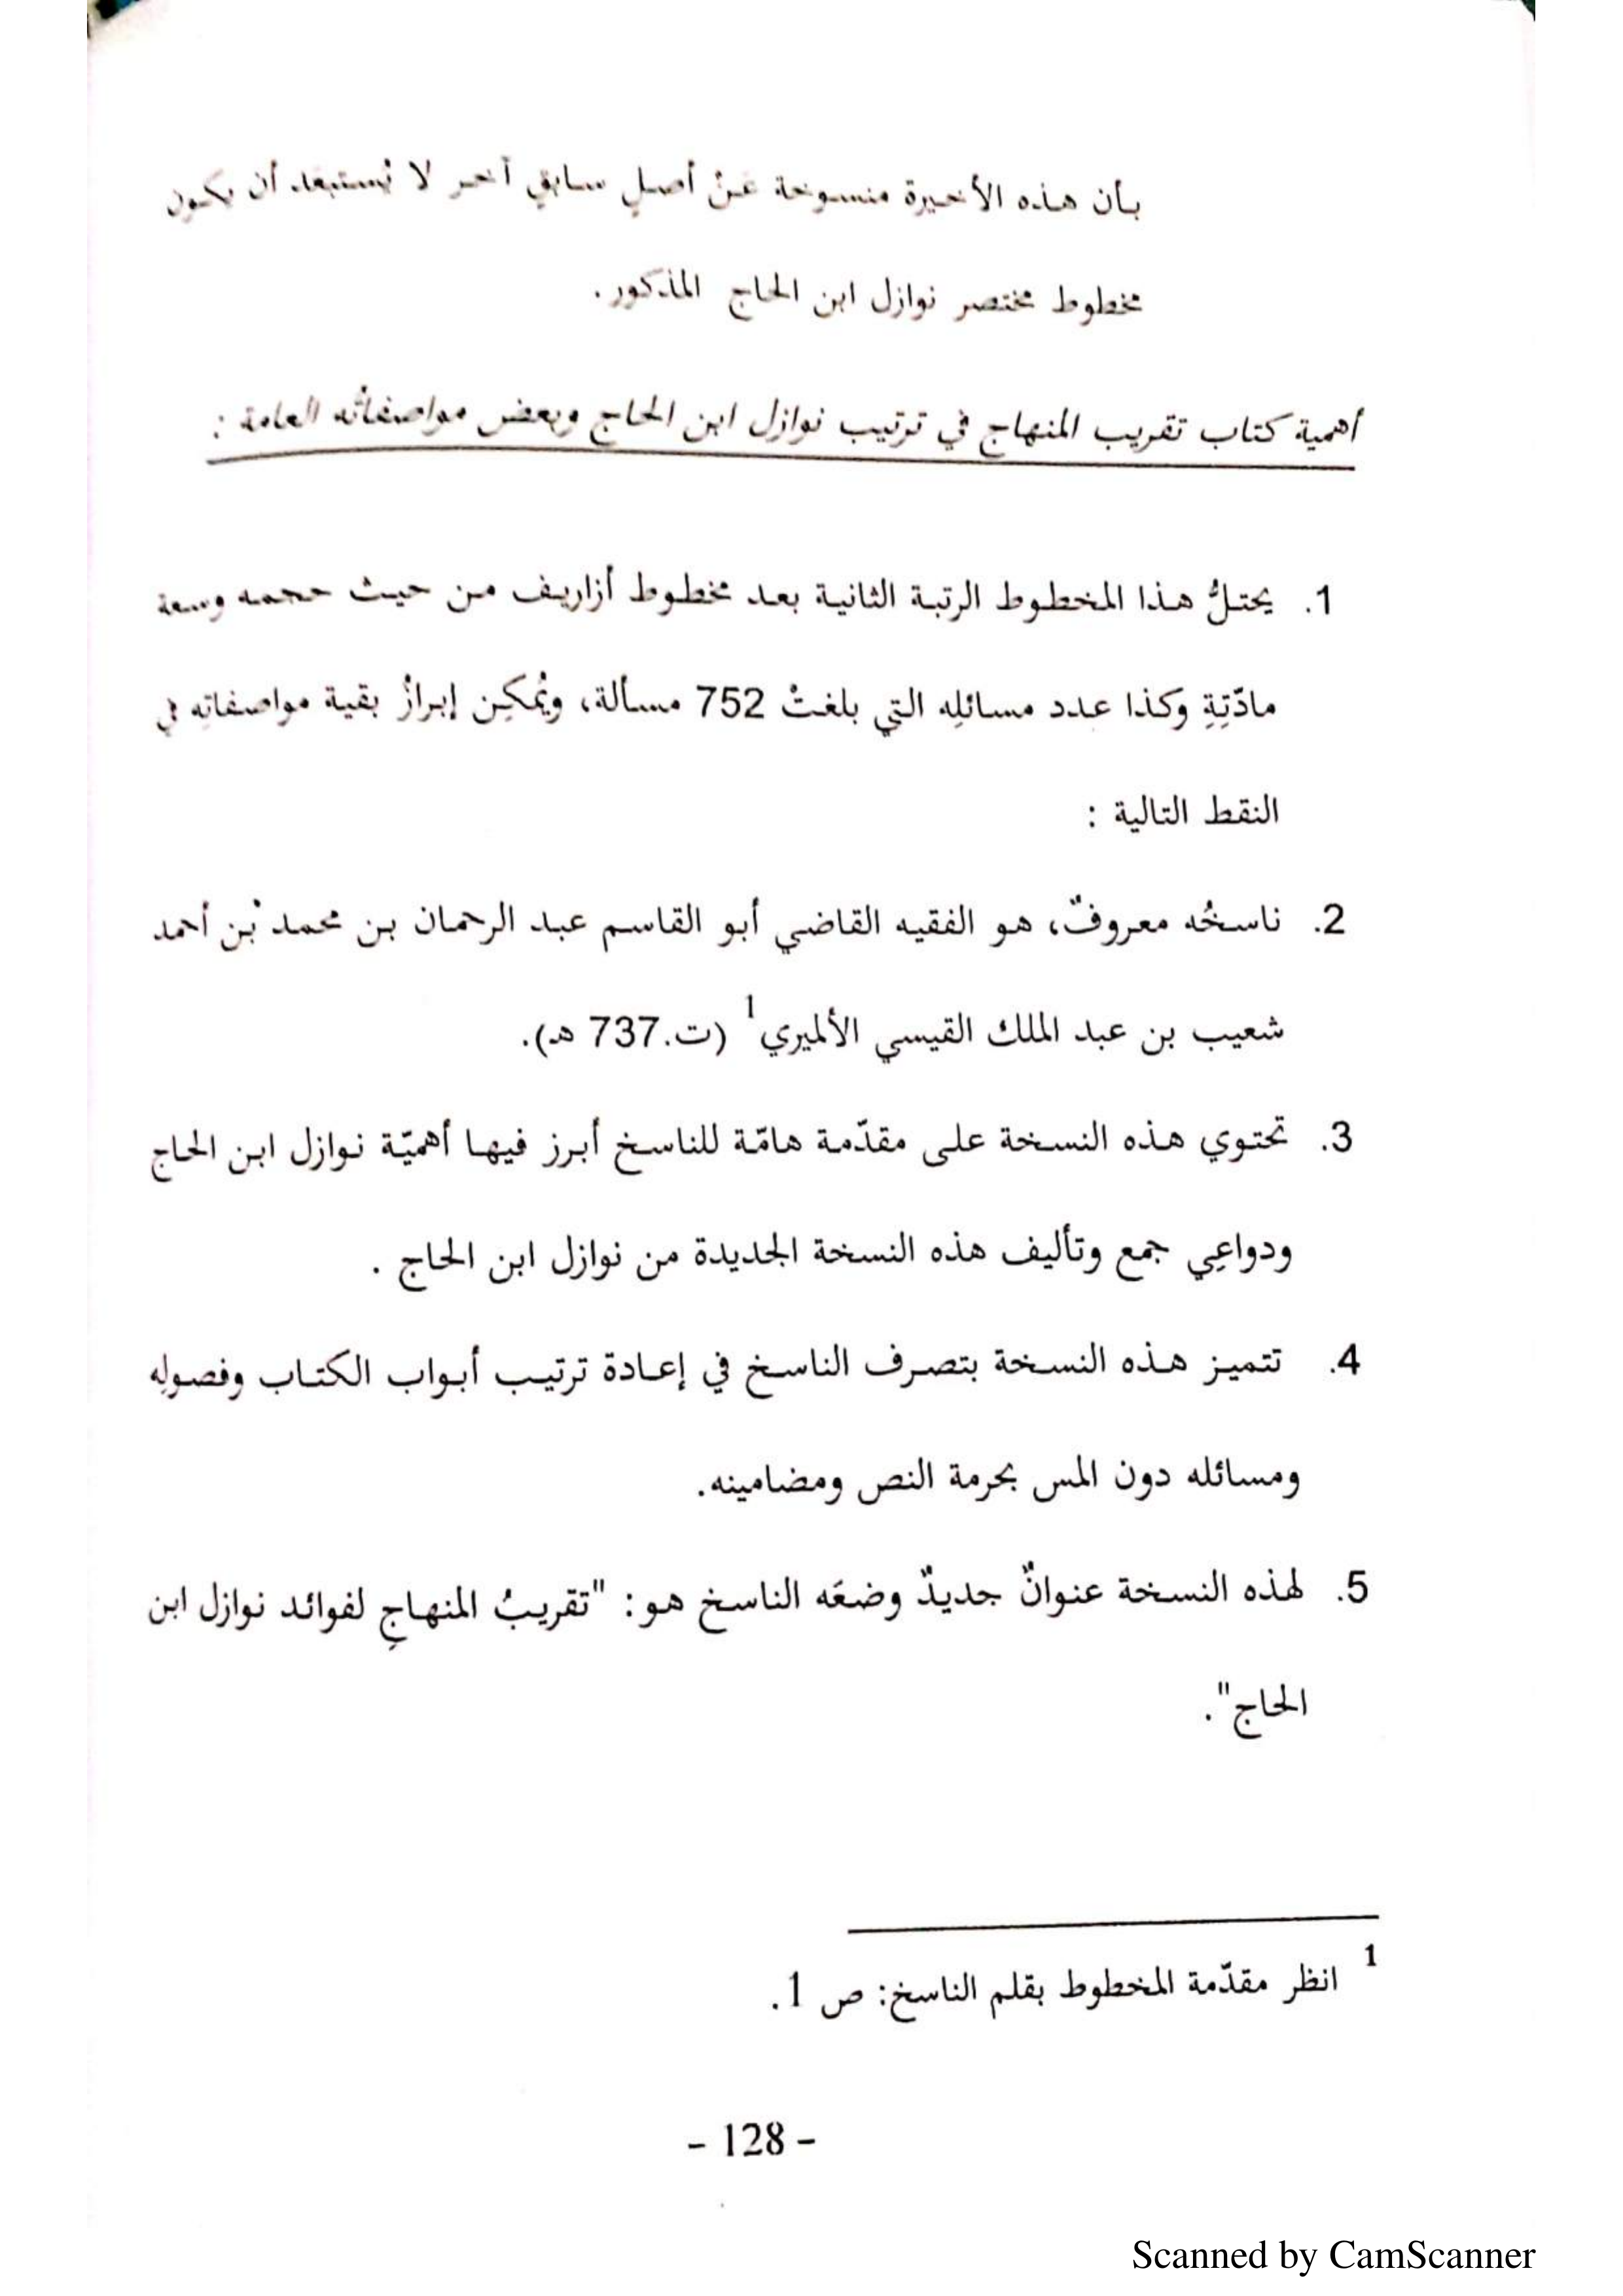 بأن هذه الأخيرة منسوخة عَنْ أصلٍ سابقٍ آخر لا يُستبعَد أن يكون
مخطوط مختصر نوازل ابن الحاج المذكور.
أهمية كتاب تقريب المنهاج في ترتيب نوازل ابن الحاج وبعض مواصفاتُه العامة :
1. يحتلُّ هذا المخطوط الرتبة الثانية بعد مخطوط أزاريف من حيث حجمه وسعة
مادّتِهِ وكذا عدد مسائلِه التي بلغتْ 752 مسألة، ويُمكِن إبرازُ بقية مواصفاتِه في
النقط التالية :
2. ناسخُه معروفٌ، هو الفقيه القاضي أبو القاسم عبد الرحمان بن محمد بْن أحمد
شعيب بن عبد الملك القيسي الألميري1 (ت.737 هـ).
3. تحتوي هذه النسخة على مقدّمة هامّة للناسخ أبرز فيها أهميّة نوازل ابن الحاج
ودواعِي جمع وتأليف هذه النسخة الجديدة من نوازل ابن الحاج .
4. تتميز هذه النسخة بتصرف الناسخ في إعادة ترتيب أبواب الكتاب وفصولِه
ومسائله دون المس بحرمة النص ومضامينه.
5. لهذه النسخة عنوانٌ جديدٌ وضعَه الناسخ هو: "تقريبُ المنهاجِ لفوائد نوازل ابن
الحاج".
1 انظر مقدّمة المخطوط بقلم الناسخ: ص 1.
- 128 -
Scanned by CamScanner